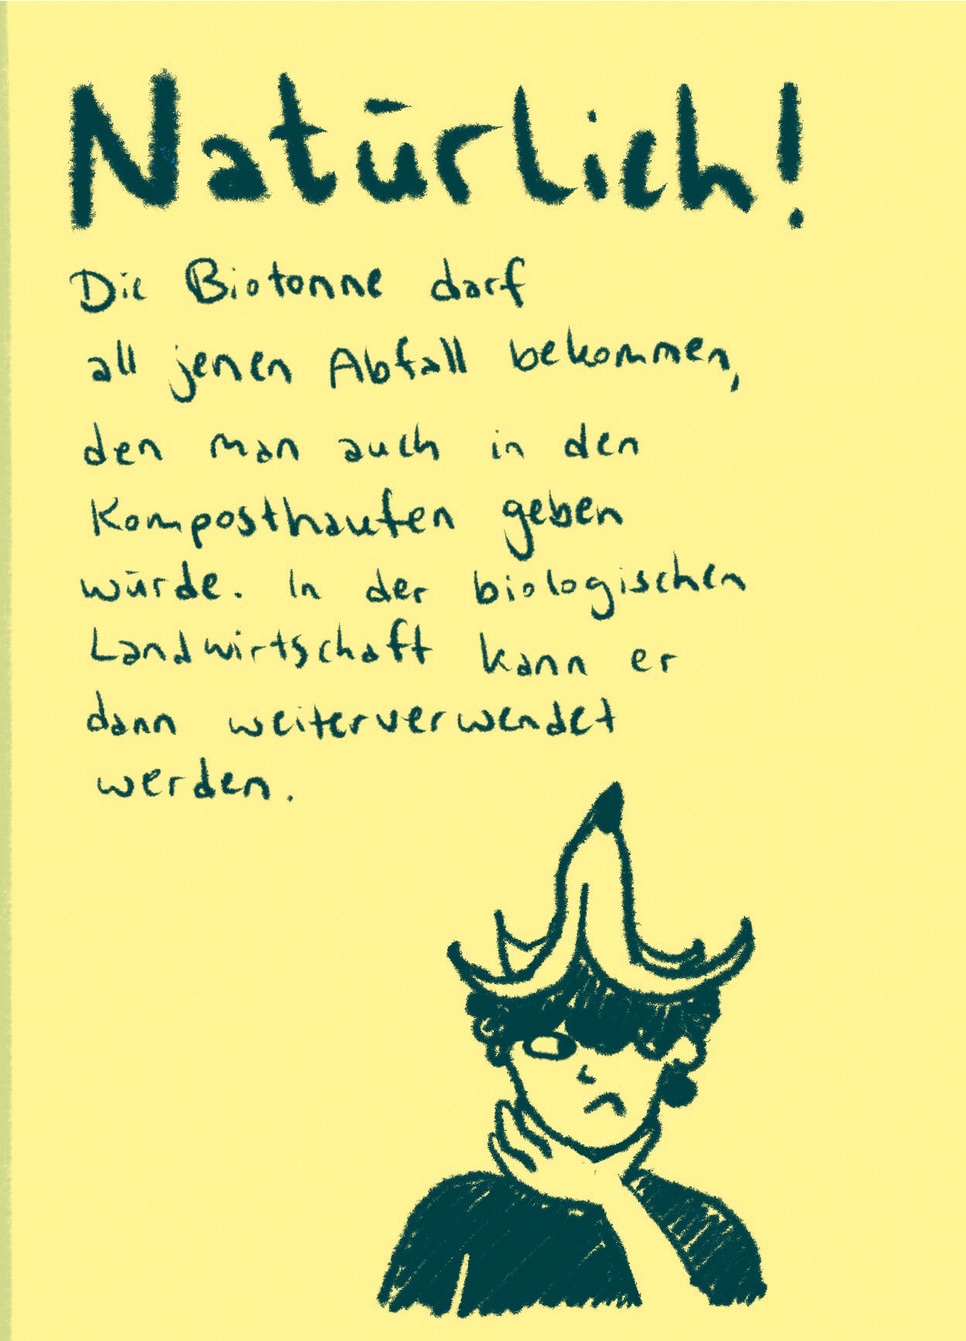 Natürlich!
Die Biotonne darf
all jenen Abfall bekommen,
den man auch in den
Komposthaufen geben
würde. In der biologischen
Landwirtschaft kann er
dann weiterverwendet
werden.